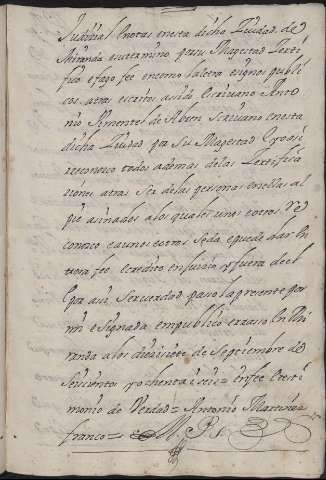 Judicial notas en esta dicha Ciudad de
Miranda su termino por su Magestad Certi
fico e fago fee en como la letra e signos publi
cos atras escritos a sido Escrivano Anto
nio Pimentel de Escrivano en esta
dicha Ciudad por su Magestad
reconozco todos ademas de las Certifica
ciones atras Ser de las personas en ellas al
pie asinados a los quales unos e otros Re
conozco e a unos e otros Se da e puede dar en
tera fee e credito en juicio y fuera de el
por aui Ser verdad paso la presente por
mi e signada en publico e raso en Mi
randa a los diez i siete de Septiembre de
Seiscientos y ochenta i seis en fee e testi
monio de Verdad = Antonio Martines
franco =